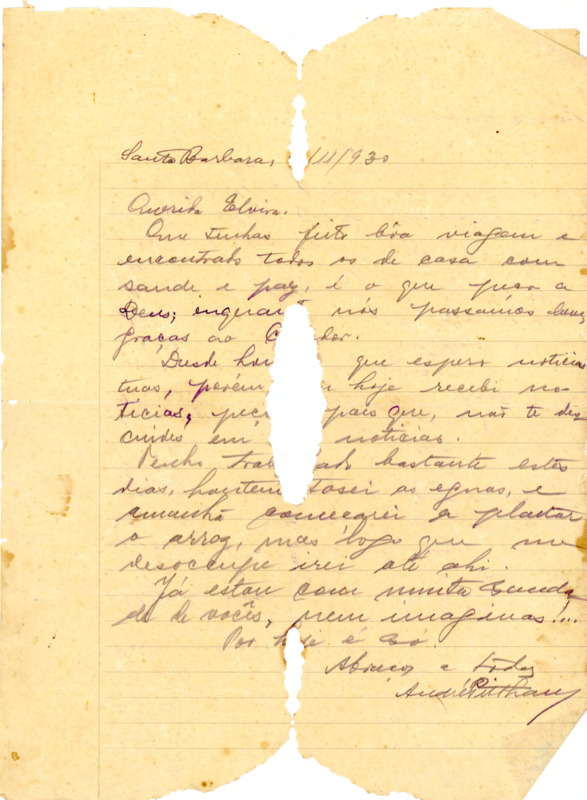 Santa Barbara, /11/930
Querida Elvira.
Que tenhas feito bôa viagem e
encontrado todos os de casa com
saude e paz, é o que peço a
Deus; enquanto nós passamos bem,
graças ao C dor.
Desde que espero noticias
tuas, porém hoje recebi no-
ticias, peço pois que, não te des-
cuides em noticias.
Tenho trab ado bastante estes
dias, hontem tosei as eguas, e
amanhã começarei a plantar
o arroz, mas lógo que me
desoccupe irei até ahi.
Já estou com muita sauda
de de vocês, nem imaginas!...
Por hoje é só.
Abraços a todos
André Pitthan